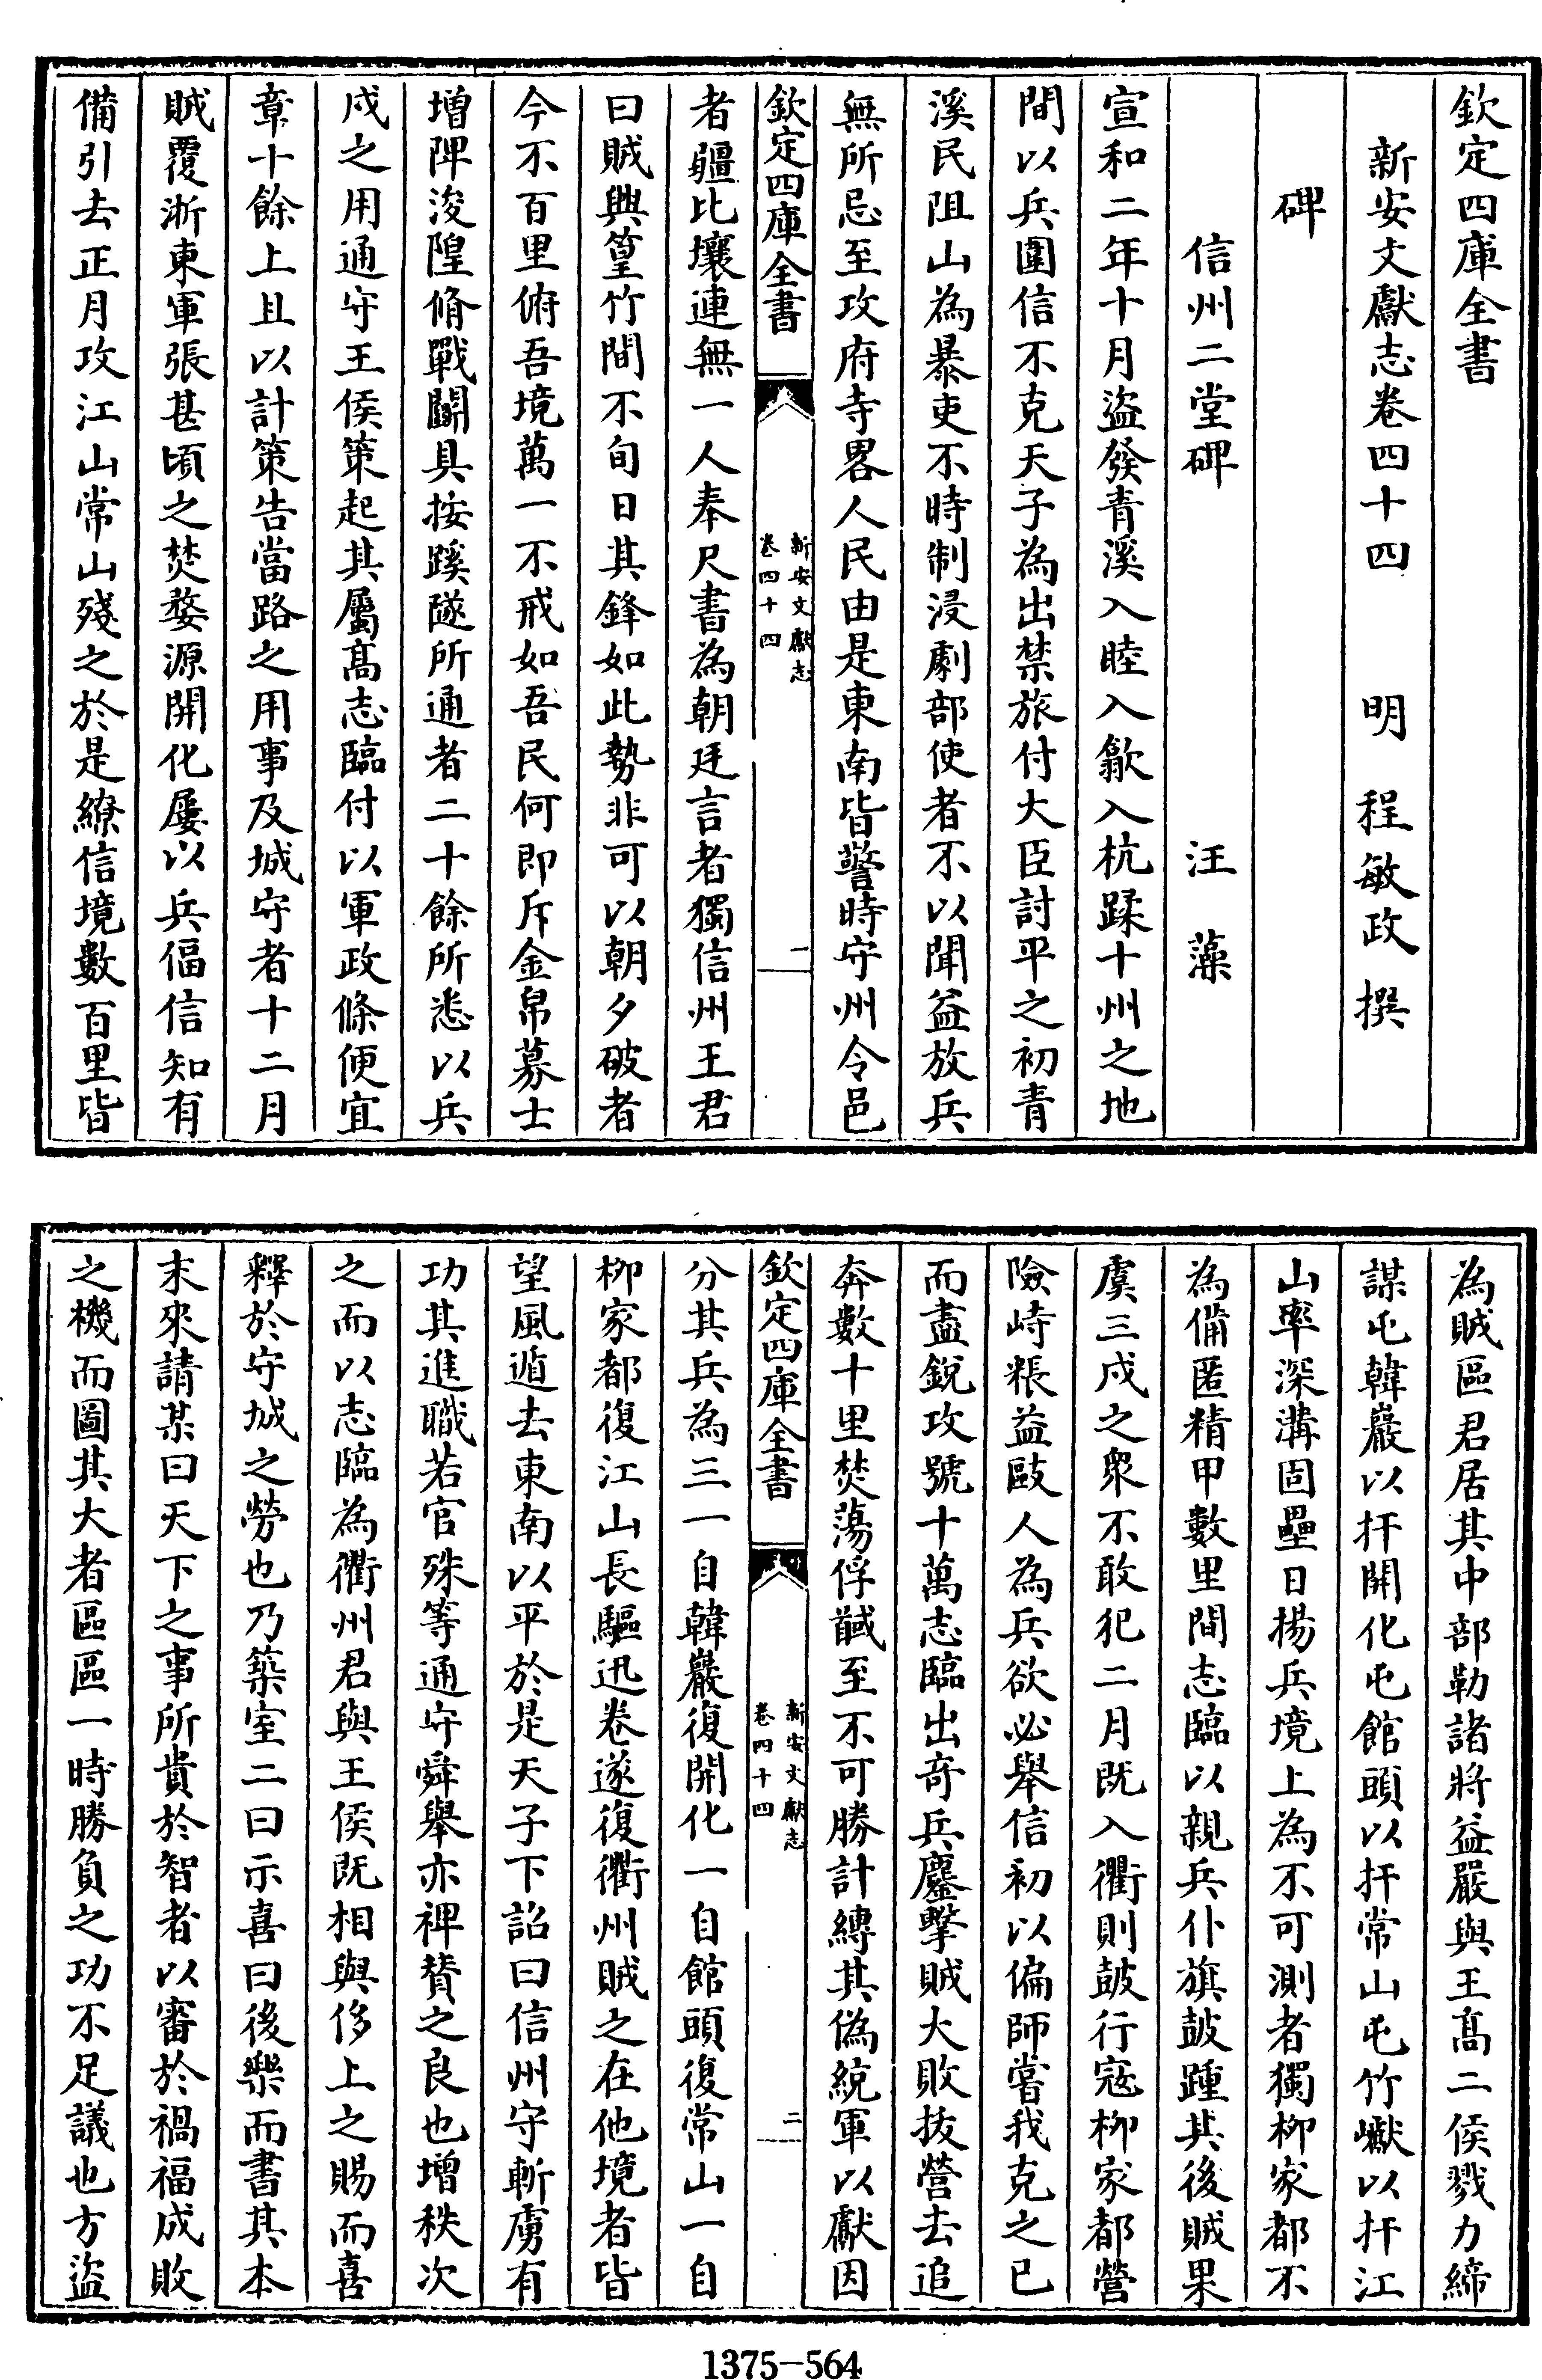 欽定四庫全書
新安文獻志卷四十四　明　程敏政　撰
碑
信州二堂碑　汪　藻
宣和二年十月盜發青溪入睦入歙入杭蹂十州之地
間以兵圍信不克天子為出禁旅付大臣討平之初青
溪民阻山為暴吏不時制浸劇部使者不以聞益放兵
無所忌至攻府寺畧人民由是東南皆警時守州令邑
欽定四庫全書
新安文獻志
卷四十四
一
者疆比壤連無一人奉尺書為朝廷言者獨信州王君
曰賊興篁竹間不旬日其鋒如此勢非可以朝夕破者
今不百里俯吾境萬一不戒如吾民何即斥金帛募士
增陴浚隍脩戰鬭具按蹊隧所通者二十餘所悉以兵
戍之用通守王侯策起其屬髙志臨付以軍政條便宜
章十餘上且以計策告當路之用事及城守者十二月
賊覆浙東軍張甚頃之焚婺源開化屢以兵偪信知有
備引去正月攻江山常山殘之於是繚信境數百里皆
為賊區君居其中部勒諸將益嚴與王髙二侯戮力締
謀屯韓巖以扞開化屯館頭以扞常山屯竹巘以扞江
山率深溝固壘日揚兵境上為不可測者獨柳家都不
為備匿精甲數里間志臨以親兵仆旗鼓踵其後賊果
虞三戍之衆不敢犯二月既入衢則鼓行寇柳家都營
險峙粻益毆人為兵欲必舉信初以偏師嘗我克之已
而盡銳攻號十萬志臨出奇兵鏖擊賊大敗拔營去追
奔數十里焚蕩俘馘至不可勝計縳其偽統軍以獻因
欽定四庫全書
新安文獻志
卷四十四
二
分其兵為三一自韓巖復開化一自館頭復常山一自
柳家都復江山長驅迅卷遂復衢州賊之在他境者皆
望風遁去東南以平於是天子下詔曰信州守斬虜有
功其進職若官殊等通守舜舉亦裨賛之良也增秩次
之而以志臨為衢州君與王侯既相與侈上之賜而喜
釋於守城之勞也乃築室二曰示喜曰後樂而書其本
末來請某曰天下之事所貴於智者以審於禍福成敗
之機而圖其大者區區一時勝負之功不足議也方盜
1375-564